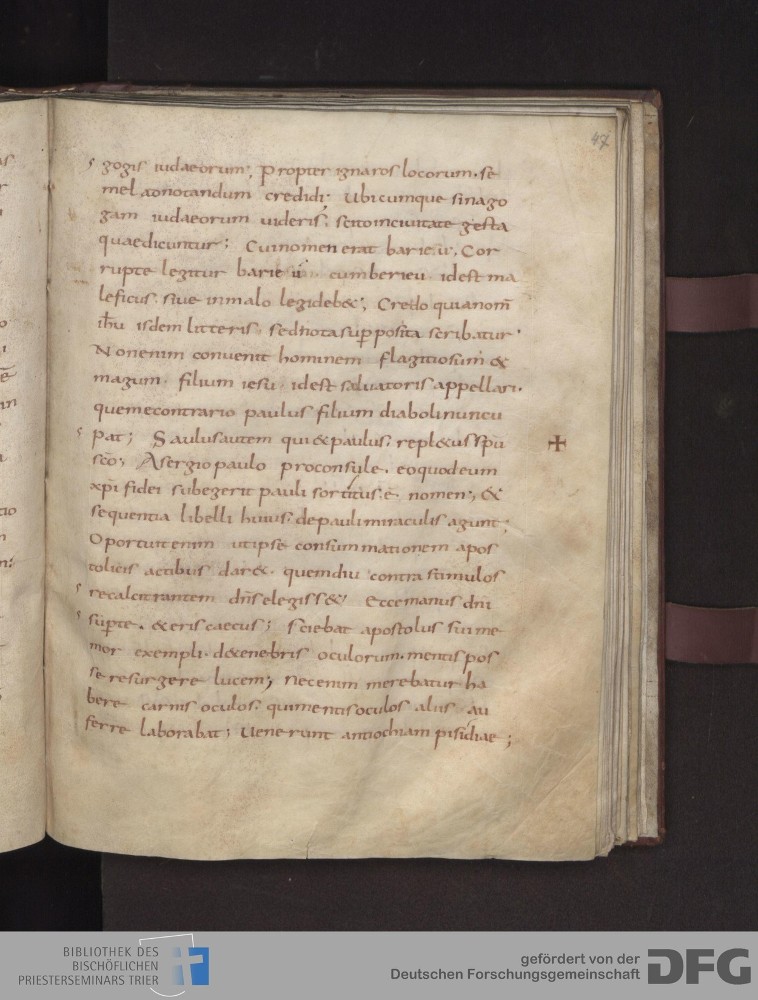 47
gogis iudaeorum; Propter ignaros locorum. se
mel adnotandum credidi; Ubicumque sinago
gam iudaeorum uideris; scito inciuitate gesta
quaedicuntur; Cuinomen erat barieu. Cor
rupte legitur barieu cumberieu. idest ma
leficus. siue inmalo legidebet; Credo quianom̄
ih̄u isdem litteris. sednota sup̄posita scribatur.
Nonenim conuenit hominem flagitiosum &
magum. filium iesu. idest saluatoris appellari.
quemecontrario paulus filium diabolinuncu
pat; Saulusautem qui&paulus. repl&ussp̄u
sc̄o; Asergiopaulo proconsule. eoquodeum
xp̄i fidei subegerit pauli sortitus .ē. nomen; &
sequentia libelli huius. depaulimiraculis agunt;
Oportuitenim utipse consummationem apos
tolicis actibus dar&. quemdiu contra stimulos
recalcitrantem dn̄selegiss&; Eccemanus dn̄i
sup̄te. &eriscaecus; sciebat apostolus suime
mor exempli. d&enebris oculorum. mentispos
se resurgere lucem; Necenim merebatur ha
bere carnis oculos. quimentisoculos aliis au
ferre laborabat; Uenerunt antiochiam pisidiae;
BIBLIOTHEK DES
BISCHÖFLICHEN
PRIESTERSEMINARS TRIER
gefördert von der
Deutschen Forschungsgemeinschaft
DFG